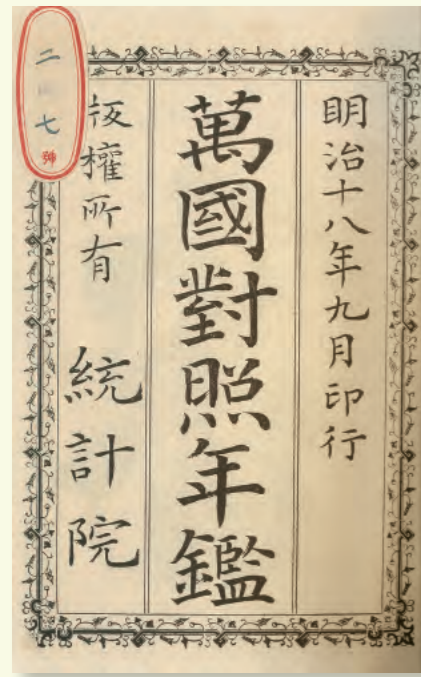 明治十八年九月印行
萬國對照年鑑
版權所有 統計院